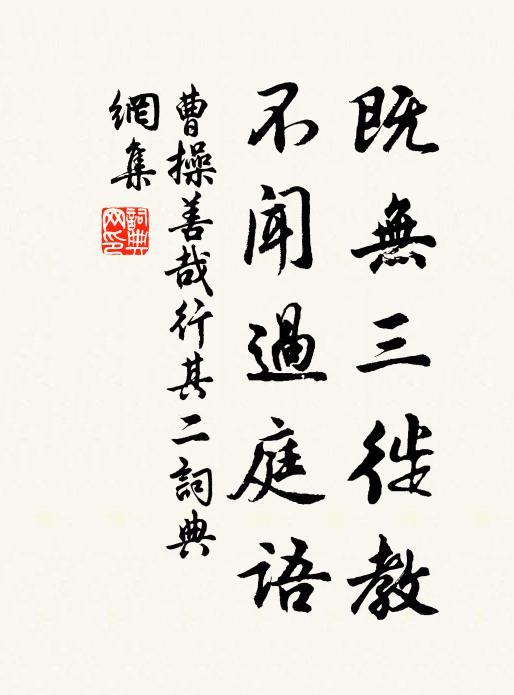 既無三徙教
不聞過庭語
曹操善哉行其二詞典
網集
詞典网印